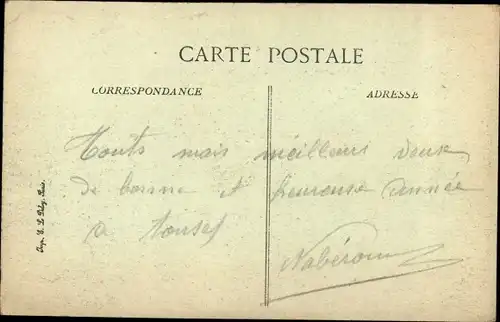 CARTE POSTALE
CORRESPONDANCE
ADRESSE
Touts mais meilleurs veux
de bonne et heureuse année
a tous